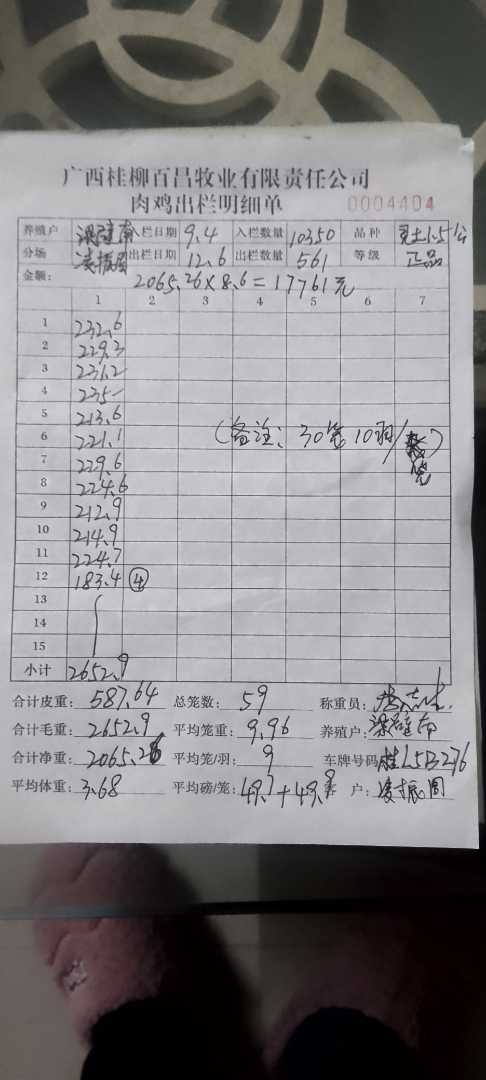 广西桂柳百昌牧业有限责任公司
肉鸡出栏明细单 0004404
养殖户 入栏日期 9.4 入栏数量 10350 品种 土1.5公
分场 凌振国 出栏日期 12.6 出栏数量 561 等级 正品
金额: 2065.26×8.6=17761元
1 2 3 4 5 6 7
1 232.6
2 229.3
3 231.2
4 235-
5 213.6
6 221.1 (备注: 30笼10羽/
7 229.6
8 224.6
9 212.9
10 214.9
11 224.7
12 183.4 ④
13
14
15
小计 2652.9
合计皮重: 587.64 总笼数: 59 称重员:
合计毛重: 2652.9 平均笼重: 9.96 养殖户:
合计净重: 2065.26 平均笼/羽: 9 车牌号码 桂L5B276
平均体重: 3.68 平均磅/笼: 49.7+49.8 户: 凌振国